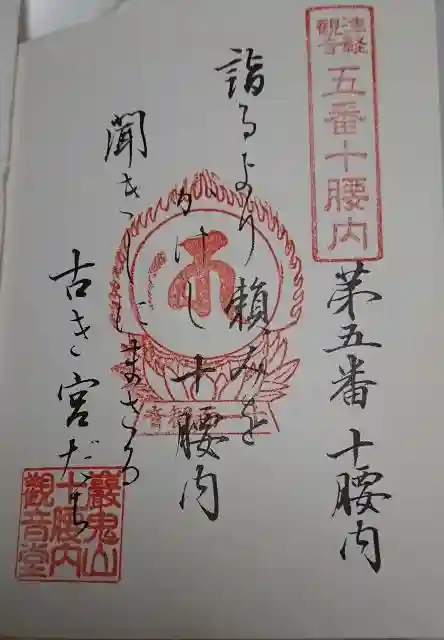 津軽
観音
五番十腰内
第五番 十腰内
詣るより頼みを
かけし十腰内
聞きしにまさる
古き宮だち
巖鬼山
十腰内
観音堂